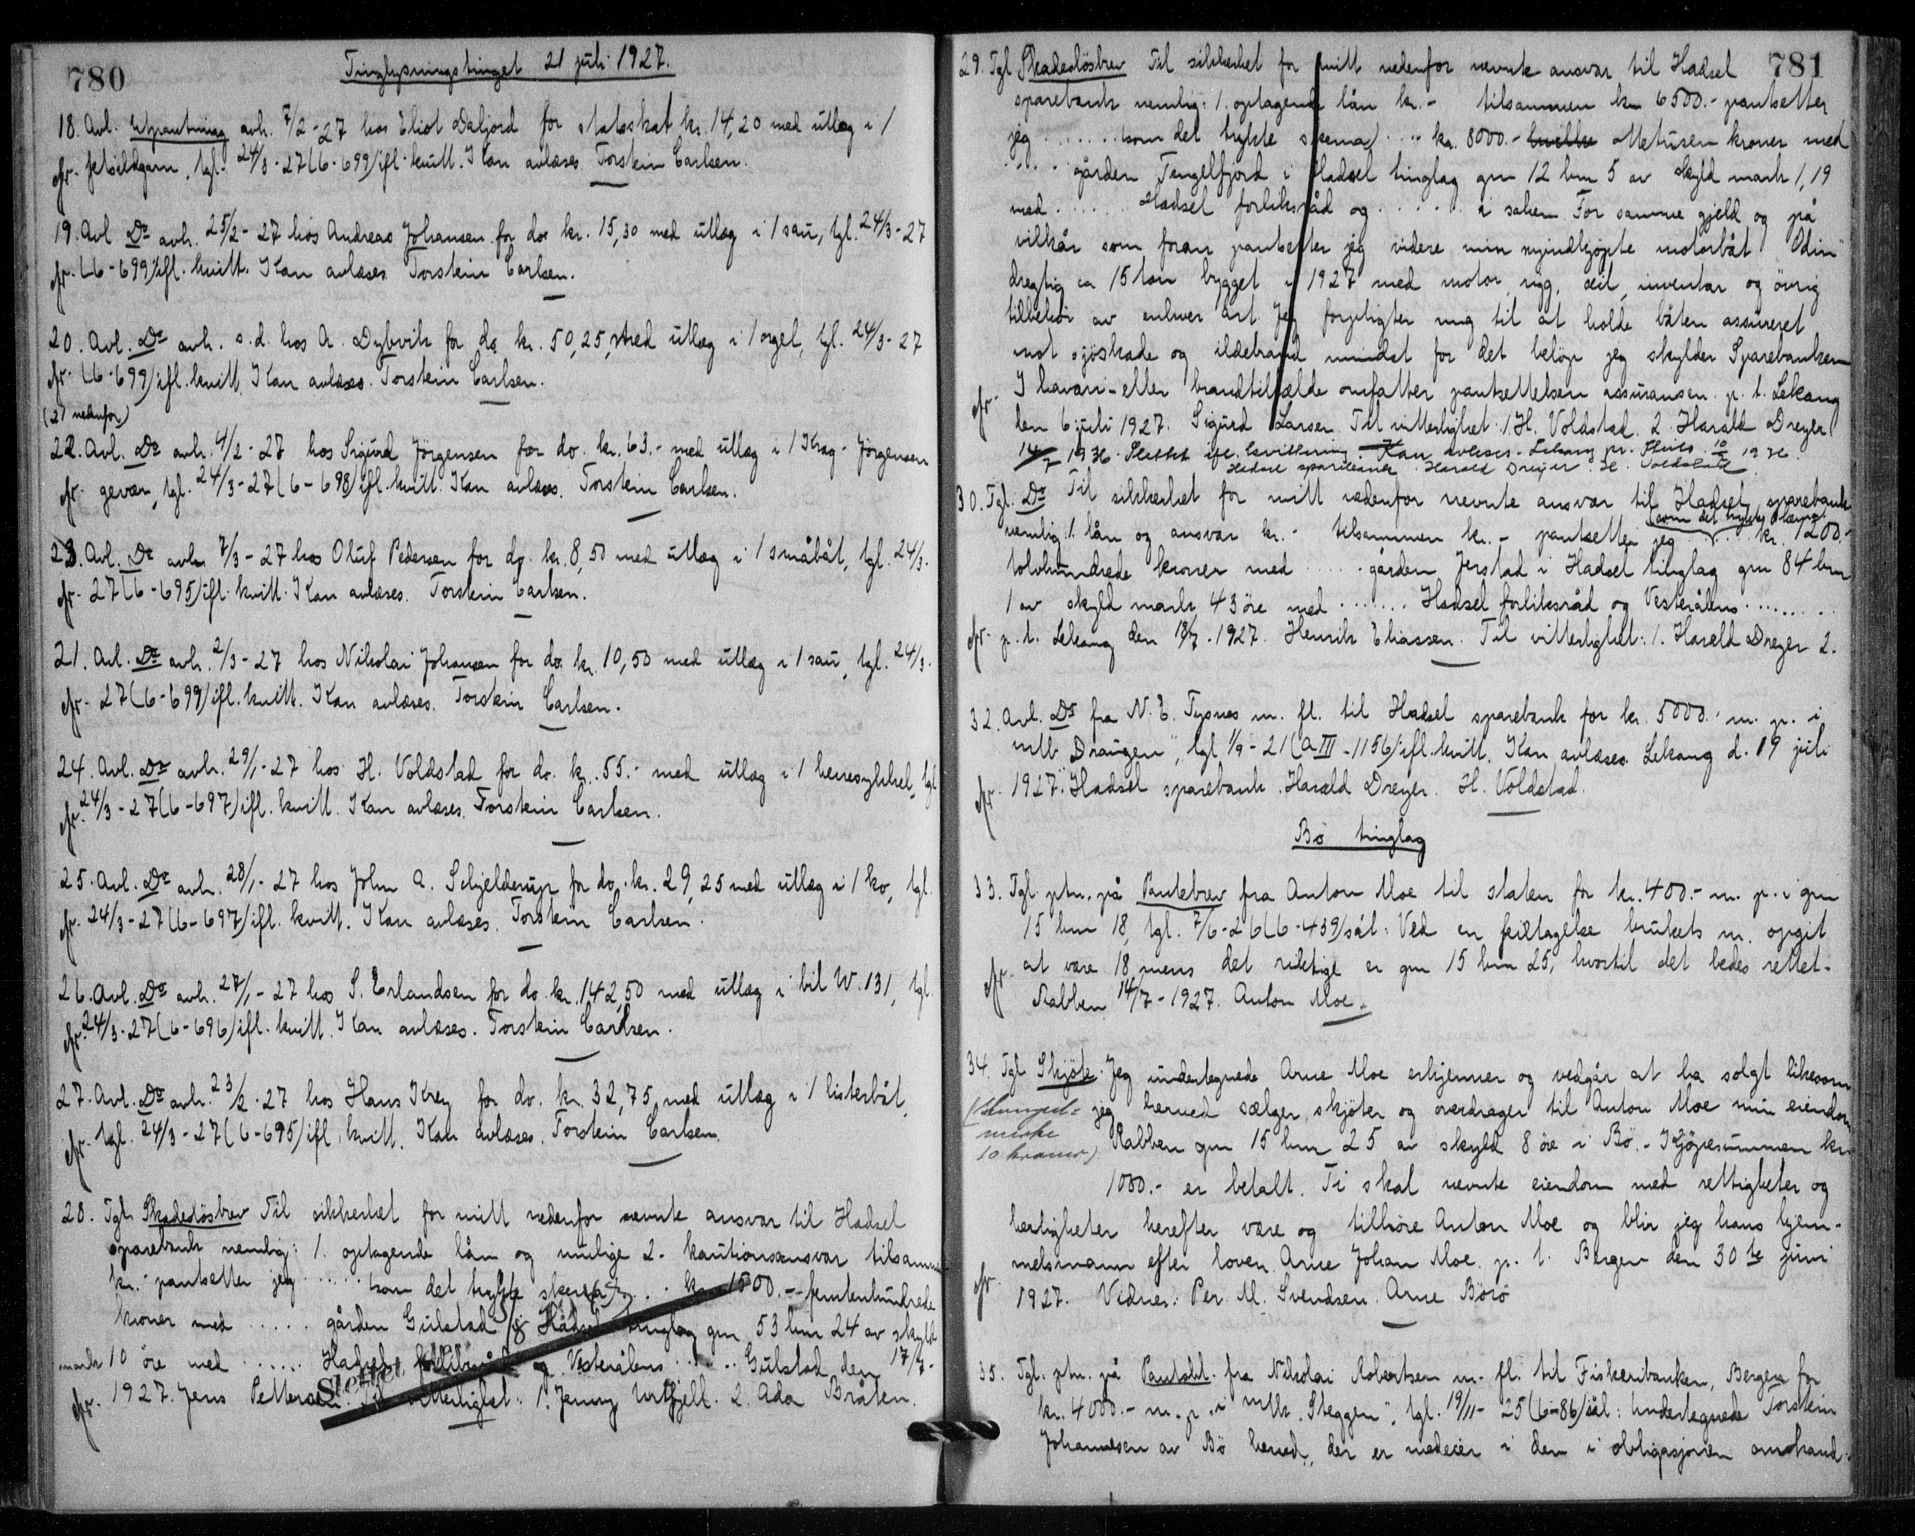 780
Tinglysningstinget 21 juli 1927.
18. Avl. Utpantning avh. 7/2-27 hos Eliot Dalfjord for statsskat kr. 14,20 med utlæg i 1
cfr. fetsildgarn, tgl. 24/3-27 (6-699) ifl. kvitt. Kan avlæses. Torstein Carlsen.
19. Avl. Do avh. 25/2-27 hos Andreas Johansen for do. kr. 15,30 med utlæg i 1 sau, tgl. 24/3-27
cfr. (6-699) ifl. kvitt. Kan avlæses Torstein Carlsen.
20. Avl. Do avh. s.d. hos A. Dybvik for do. kr. 50,25, med utlæg i 1 orgel, tgl. 24/3-27
cfr. (6-699) ifl. kvitt. Kan avlæses. Torstein Carlsen.
(21 nedenfor)
22. Avl. Do avh. 4/2-27 hos Sigurd Jörgensen for do. kr. 63.- med utlæg i 1 Krag-Jörgensen
cfr. gevær, tgl. 24/3-27 (6-698) ifl. kvitt. Kan avlæses. Torstein Carlsen.
23. Avl. Do avh. 7/3-27 hos Oluf Pedersen for do. kr. 8,50 med utlæg i 1 småbåt, tgl. 24/3-
cfr. 27 (6-695) ifl. kvitt. Kan avlæses. Torstein Carlsen.
21. Avl. Do avh. 2/3-27 hos Nikolai Johansen for do. kr. 10,50 med utlæg i 1 sau, tgl. 24/3-
cfr. 27 (6-699) ifl. kvitt. Kan avlæses. Torstein Carlsen.
24. Avl. Do avh. 29/1-27 hos H. Voldstad for do. kr. 55.- med utlæg i 1 herresykkel, tgl
cfr. 24/3-27 (6-697) ifl. kvitt. Kan avlæses. Torstein Carlsen.
25. Avl. Do avh. 28/1-27 hos John A. Schjelderup for do. kr. 29,25 med utlæg i 1 ko, tgl.
cfr. 24/3-27 (6-697) ifl. kvitt. Kan avlæses. Torstein Carlsen.
26. Avl. Do avh. 27/1-27 hos S. Erlandsen for do. kr. 142,50 med utlæg i bil W.131, tgl.
cfr. 24/3-27 (6-696) ifl. kvitt. Kan avlæses. Torstein Carlsen.
27. Avl. Do avh. 23/2-27 hos Hans Krey for do. kr. 32,75, med utlæg i 1 listerbåt,
cfr. tgl. 24/3-27 (6-695) ifl. kvitt. Kan avlæses. Torstein Carlsen.
28. Tgl. Skadeslösbrev Til sikkerhet for mitt nedenfor nevnte ansvar til Hadsel
sparebank nemlig: 1. optagende lån og mulige 2. kautionsansvar tilsammen
kr. - pantsetter jeg ...... som det trykte skema) .... kr. 1500.- femtenhundrede
kroner med ..... gården Gulstad i Hadsel tinglag gnr 53 bnr 24 av skyld
mark 10 öre med ...... Hadsel forliksråd og Vesterålens ..... Gulstad den 17/7-
cfr. 1927. Jens Pettersen. Til vitterlighet: 1. Jenny Urtfjell. 2. Ada Bråten.
Slettet
781
29. Tgl. Skadeslösbrev Til sikkerhet for mitt nedenfor nevnte ansvar til Hadsel
sparebank nemlig: 1. optagende lån kr. - tilsammen kr. 6500.- pantsetter
jeg ...... som det trykte skema) .... kr. 8000.- hvilke ottetusen kroner med
.... gården Tengelfjord i Hadsel tinglag gnr 12 bnr 5 av skyld mark 1,19
med ...... Hadsel forliksråd og ...... i saken. For samme gjeld og på
vilkår som foran pantsetter jeg videre min nyindkjöpte motorbåt "Odin"
dregtig ca 15 ton bygget i 1927 med motor, rigg, seil, inventar og övrig
tilbehör av enhver art. Jeg forpligter mig til at holde båten assureret
mot sjöskade og ildebrand mindst for det belöp jeg skylder Sparebanken
cfr. I havari- eller brandtilfælde omfatter pantsettelsen assuransen. p. t. Lekang
den 6 juli 1927. Sigurd Larsen. Til vitterlighet: 1. H. Voldstad. 2. Harald Dreyer
14/7 1936. Slettet ifl. kvittering Kan avleses. Lekang pr. Stmls. 10/7 1936.
Hadsel sparebank. Harald Dreyer. H. Voldstad
30. Tgl. Do Til sikkerhet for mitt nedenfor nevnte ansvar til Hadsel sparebank
nemlig: 1. lån og ansvar kr. - tilsammen kr. - pantsetter jeg (som det trykte skema) .. kr. 1200.-
tolvhundrede kroner med ..... gården Jerstad i Hadsel tinglag gnr 84 bnr
1 av skyld mark 43 öre med ....... Hadsel forliksråd og Vesterålens ........
cfr. p. t. Lekang den 18/7-1927. Henrik Eliassen. Til vitterlighet: 1. Harald Dreyer 2.
32. Avl. Do fra N. E. Tysnes m. fl. til Hadsel sparebank for kr. 5000.- m. p. i
m/b "Draugen", tgl. 1/9-21 (A III-1156) ifl. kvitt. Kan avlæses. Lekang d. 19 juli
cfr. 1927. Hadsel sparebank. Harald Dreyer. H. Voldstad.
Bö tinglag
33. Tgl. ptn. på Pantebrev fra Anton Moe til staten for kr. 400.- m. p. i gnr
15 bnr 18, tgl. 7/6-26 (6-439) sål: Ved en feiltagelse brukets nr. opgit
cfr. at være 18, mens det riktige er gnr 15 bnr 25, hvortil det bedes rettet.
Rabben 14/7-1927. Anton Moe.
34. Tgl. Skjöte. Jeg undertegnede Arne Moe erkjenner og vedgår at ha solgt likesom
(Stempel- jeg herved sælger, skjöter og overdrager til Anton Moe min eiendom
merke Rabben gnr 15 bnr 25 av skyld 8 öre i Bö. - Kjöpesummen kr.
10 kroner) 1000.- er betalt. Ti skal nevnte eiendom med rettigheter og
herligheter herefter være og tilhöre Anton Moe og blir jeg hans hjem-
melsmann efter loven. Arne Johan Moe. p. t. Bergen den 30te juni
cfr. 1927. Vidner: Per M. Svendsen. Arne Börö
35. Tgl. ptn. på Pantobl. fra Nikolai Robertsen m. fl. til Fiskeribanken, Bergen for
kr. 4000.- m. p. i m/k "Skeggen", tgl. 19/11-25 (6-86) sål: Undertegnede Torstein
Johannesen av Bö herred, der er medeier i den i obligasjonen omhand-